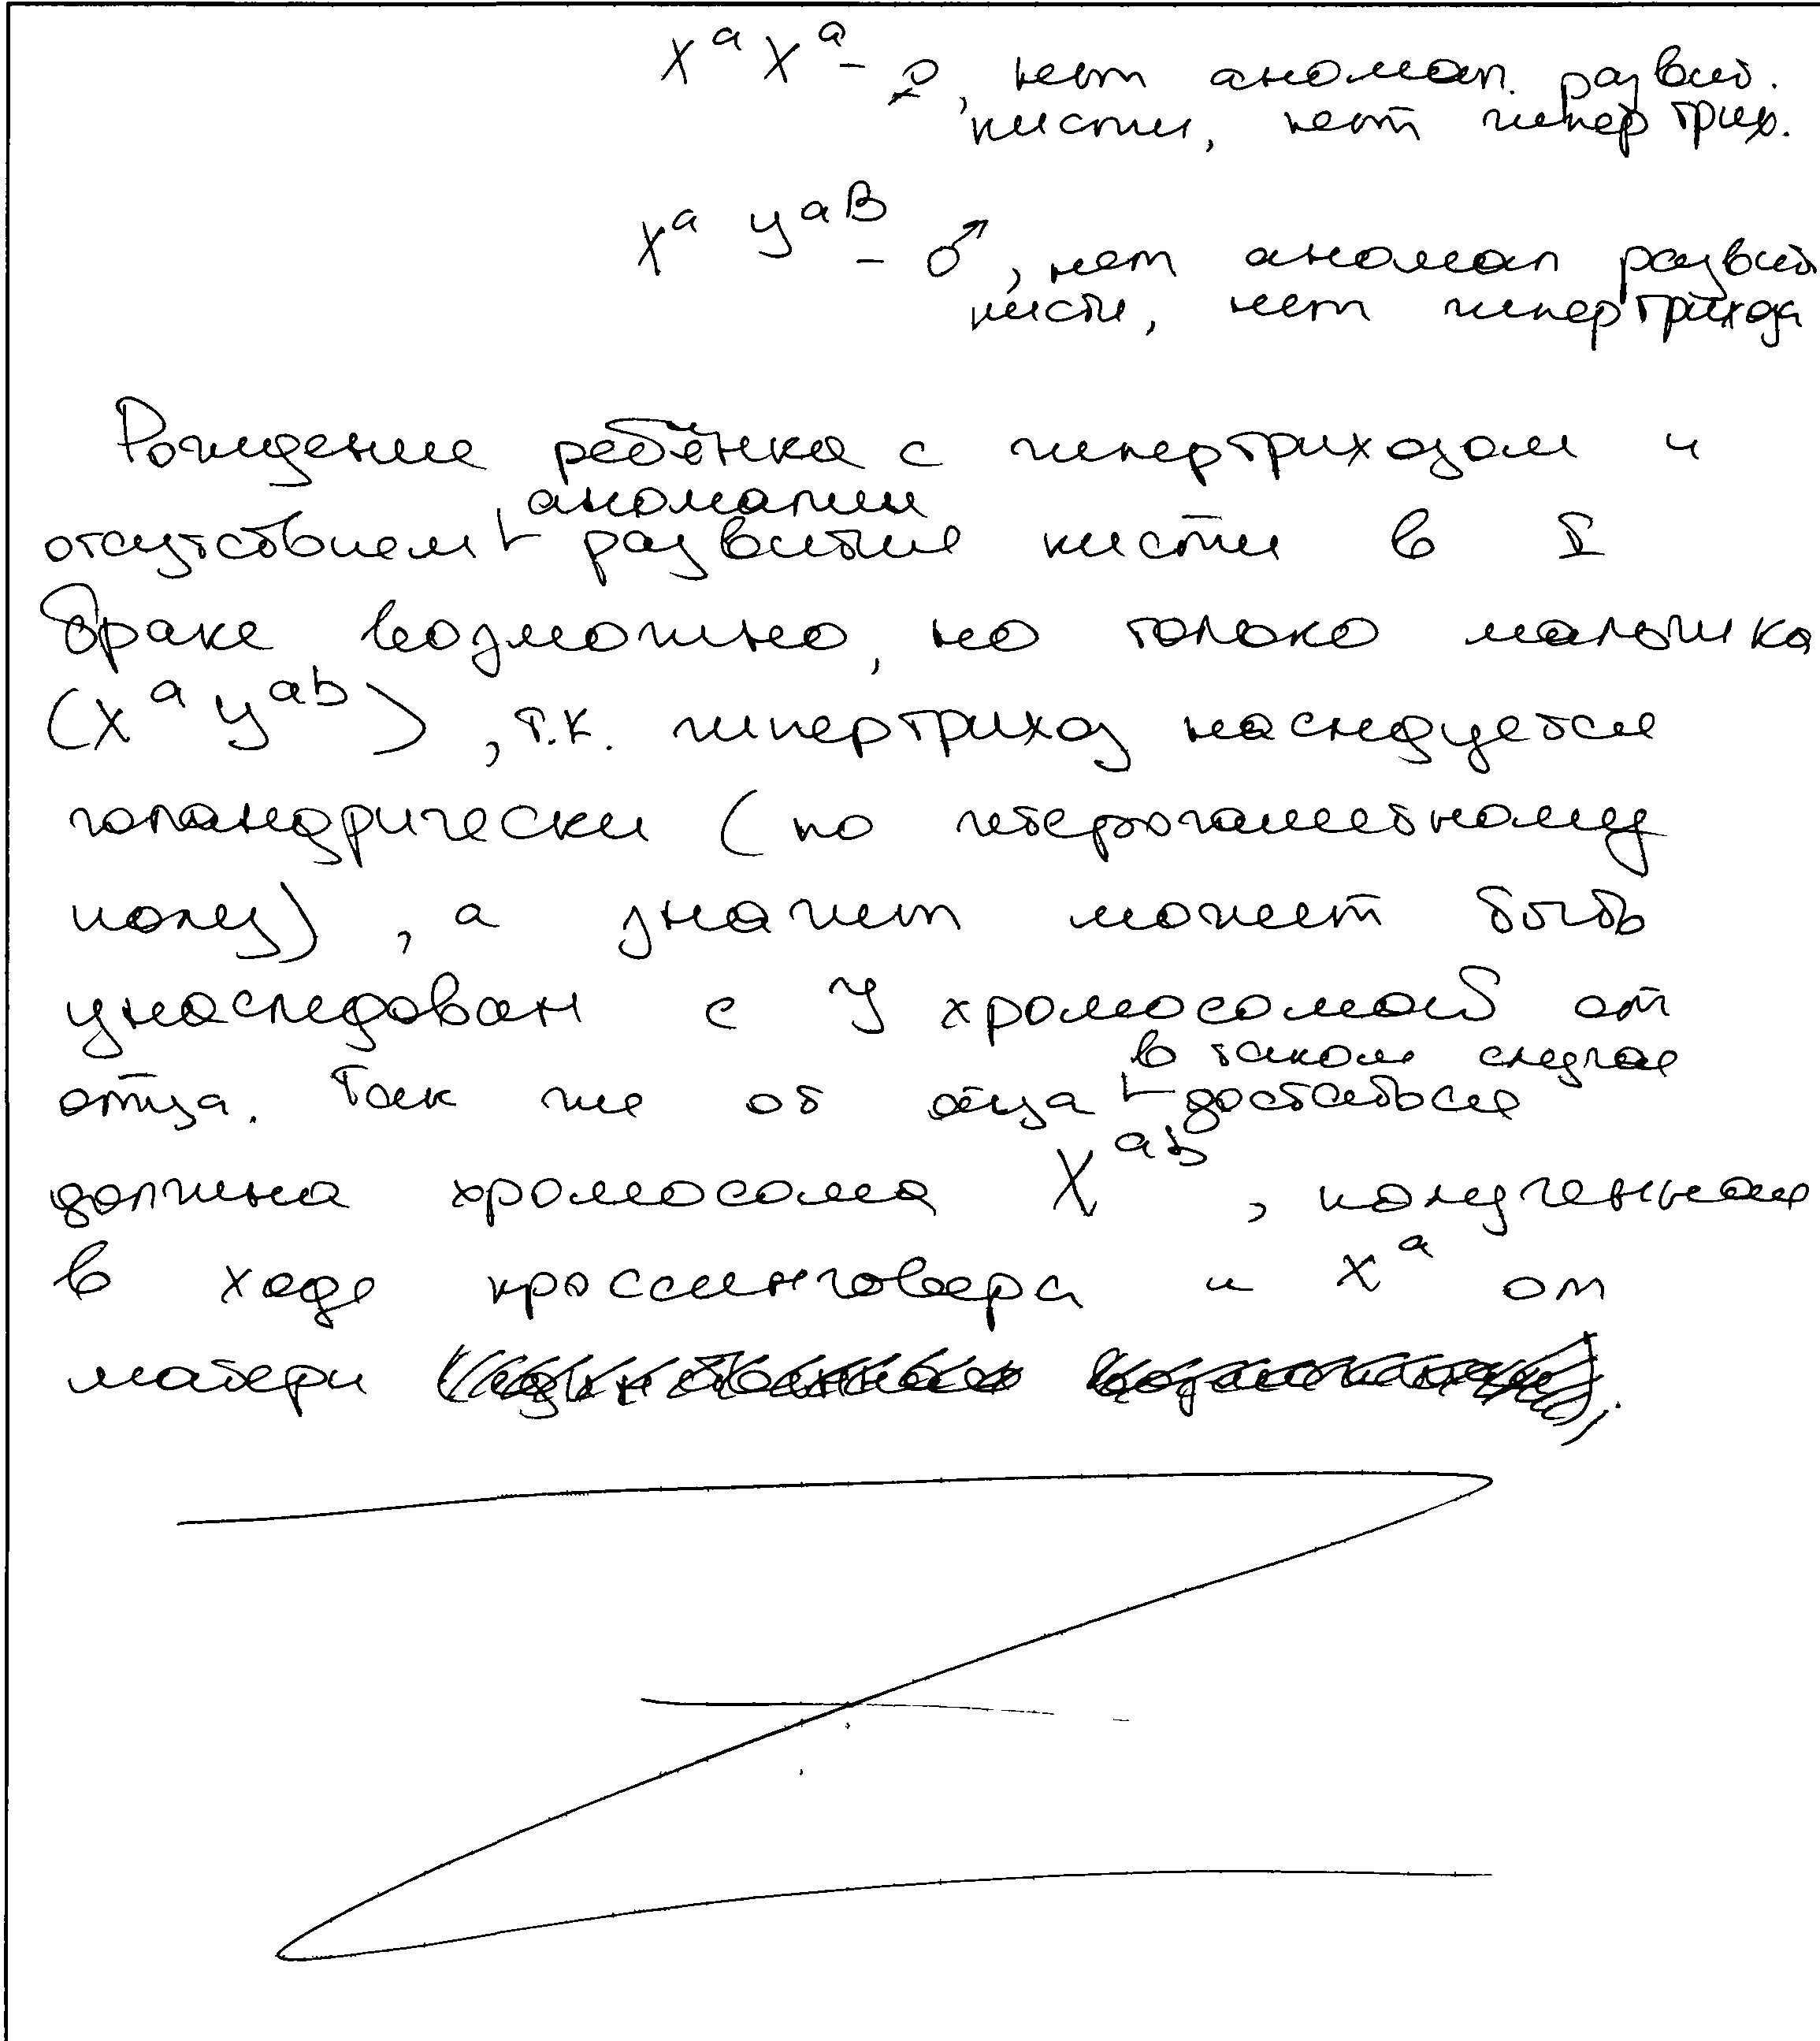 X^a X^a - ♀, нет аномал. развит.
кисти, нет гипертрих.
X^a Y^aB - ♂, нет аномал развит
кисти, нет гипертрихоза
Рождение ребёнка с гипертрихозом и
аномалии
отсутствием развития кисти в I
браке возможно, но только мальчика
(X^a Y^ab), т.к. гипертрихоз наследуется
голандрически (по гетерогаметному
полу), а значит может быть
унаследован с Y хромосомой от
в таком случае
отца. Так же от отца достаться
должна хромосома X^ab, полученная
в ходе кроссинговера и X^a от
матери